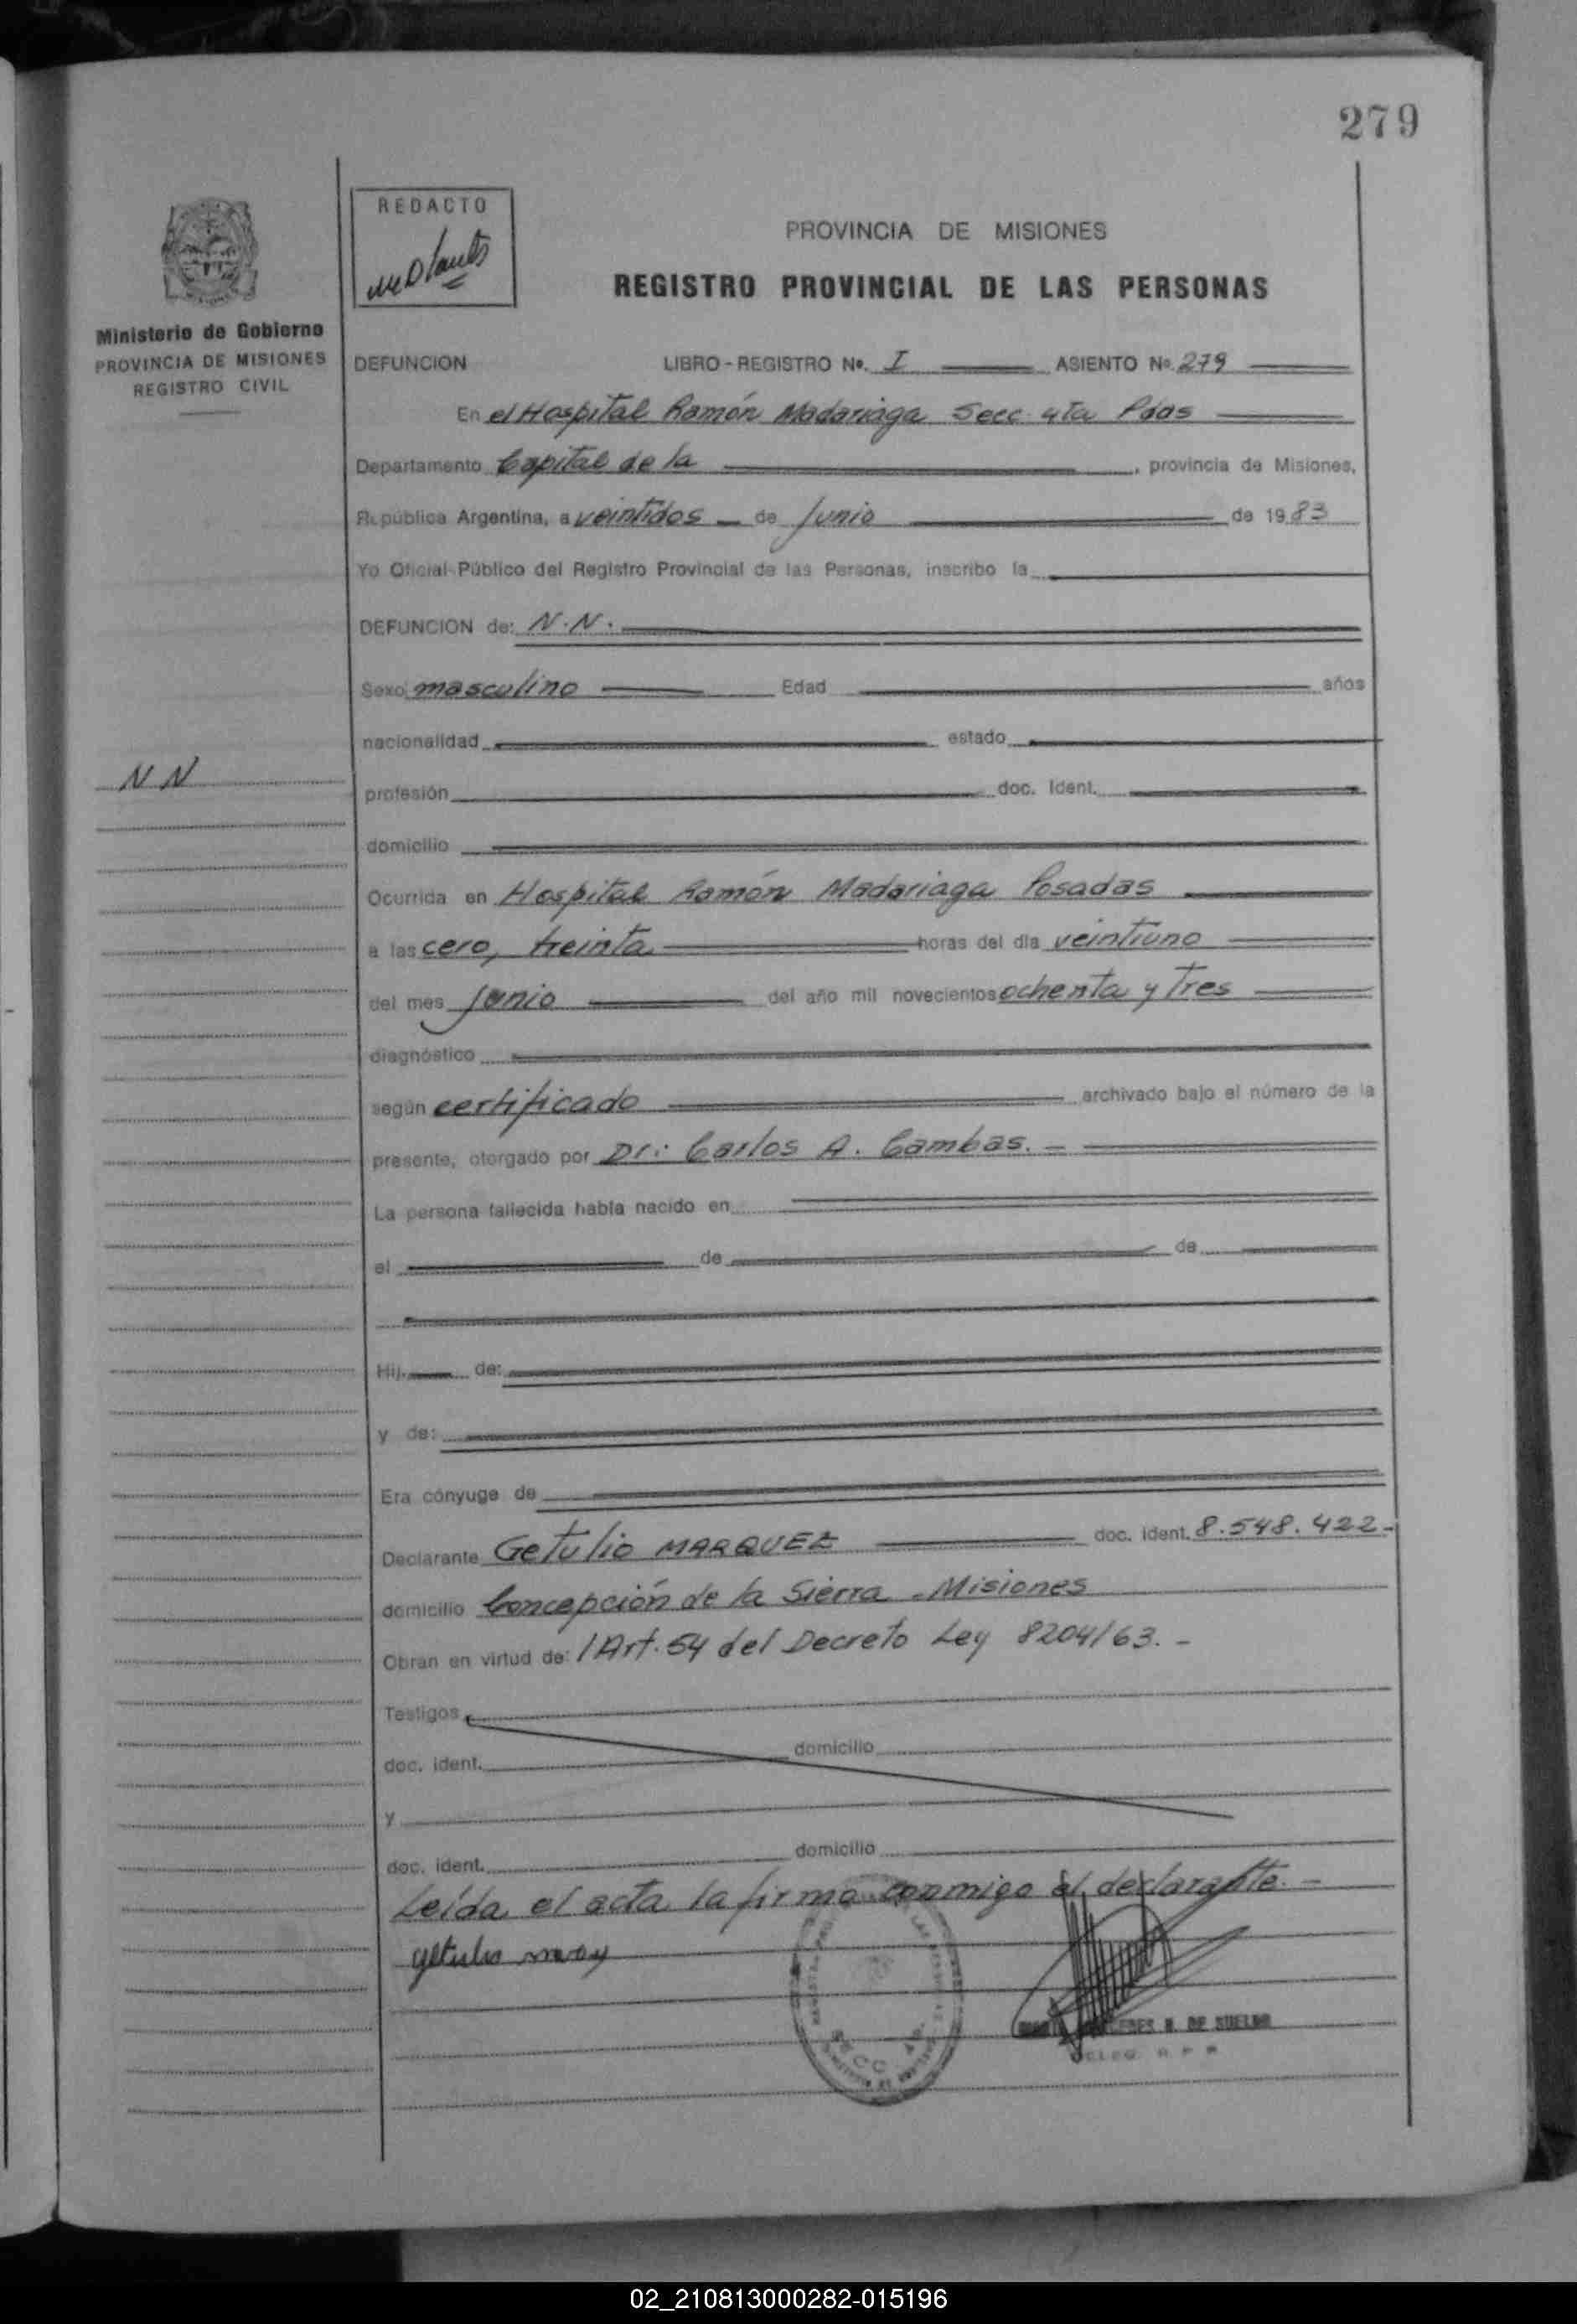 279
REDACTO
PROVINCIA DE MISIONES
REGISTRO PROVINCIAL DE LAS PERSONAS
Ministerio de Gobierno
PROVINCIA DE MISIONES
REGISTRO CIVIL
DEFUNCION LIBRO - REGISTRO Nº. I ASIENTO Nº. 279
En el Hospital Ramón Madariaga Secc. 4ta Pdas
Departamento Capital de la , provincia de Misiones,
República Argentina, a veintidos de Junio de 1983
Yo Oficial Público del Registro Provincial de las Personas, inscribo la
DEFUNCION de: N.N.
Sexo masculino Edad años
nacionalidad estado
N N
profesión doc. Ident.
domicilio
Ocurrida en Hospital Ramón Madariaga Posadas
a las cero, treinta horas del día veintiuno
del mes Junio del año mil novecientos ochenta y Tres
diagnóstico
según certificado archivado bajo el número de la
presente, otorgado por Dr.: Carlos A. Cambas. -
La persona fallecida había nacido en
el de de
Hij de:
y de:
Era cónyuge de
Declarante Getulio MARQUEZ doc. ident. 8.548.422-
domicilio Concepción de la Sierra - Misiones
Obran en virtud de: /Art. 54 del Decreto Ley 8204/63. -
Testigos
doc. ident. domicilio
y
doc. ident. domicilio
Leída el acta la firma conmigo el declarante. -
DE SUELDO
02_210813000282-015196